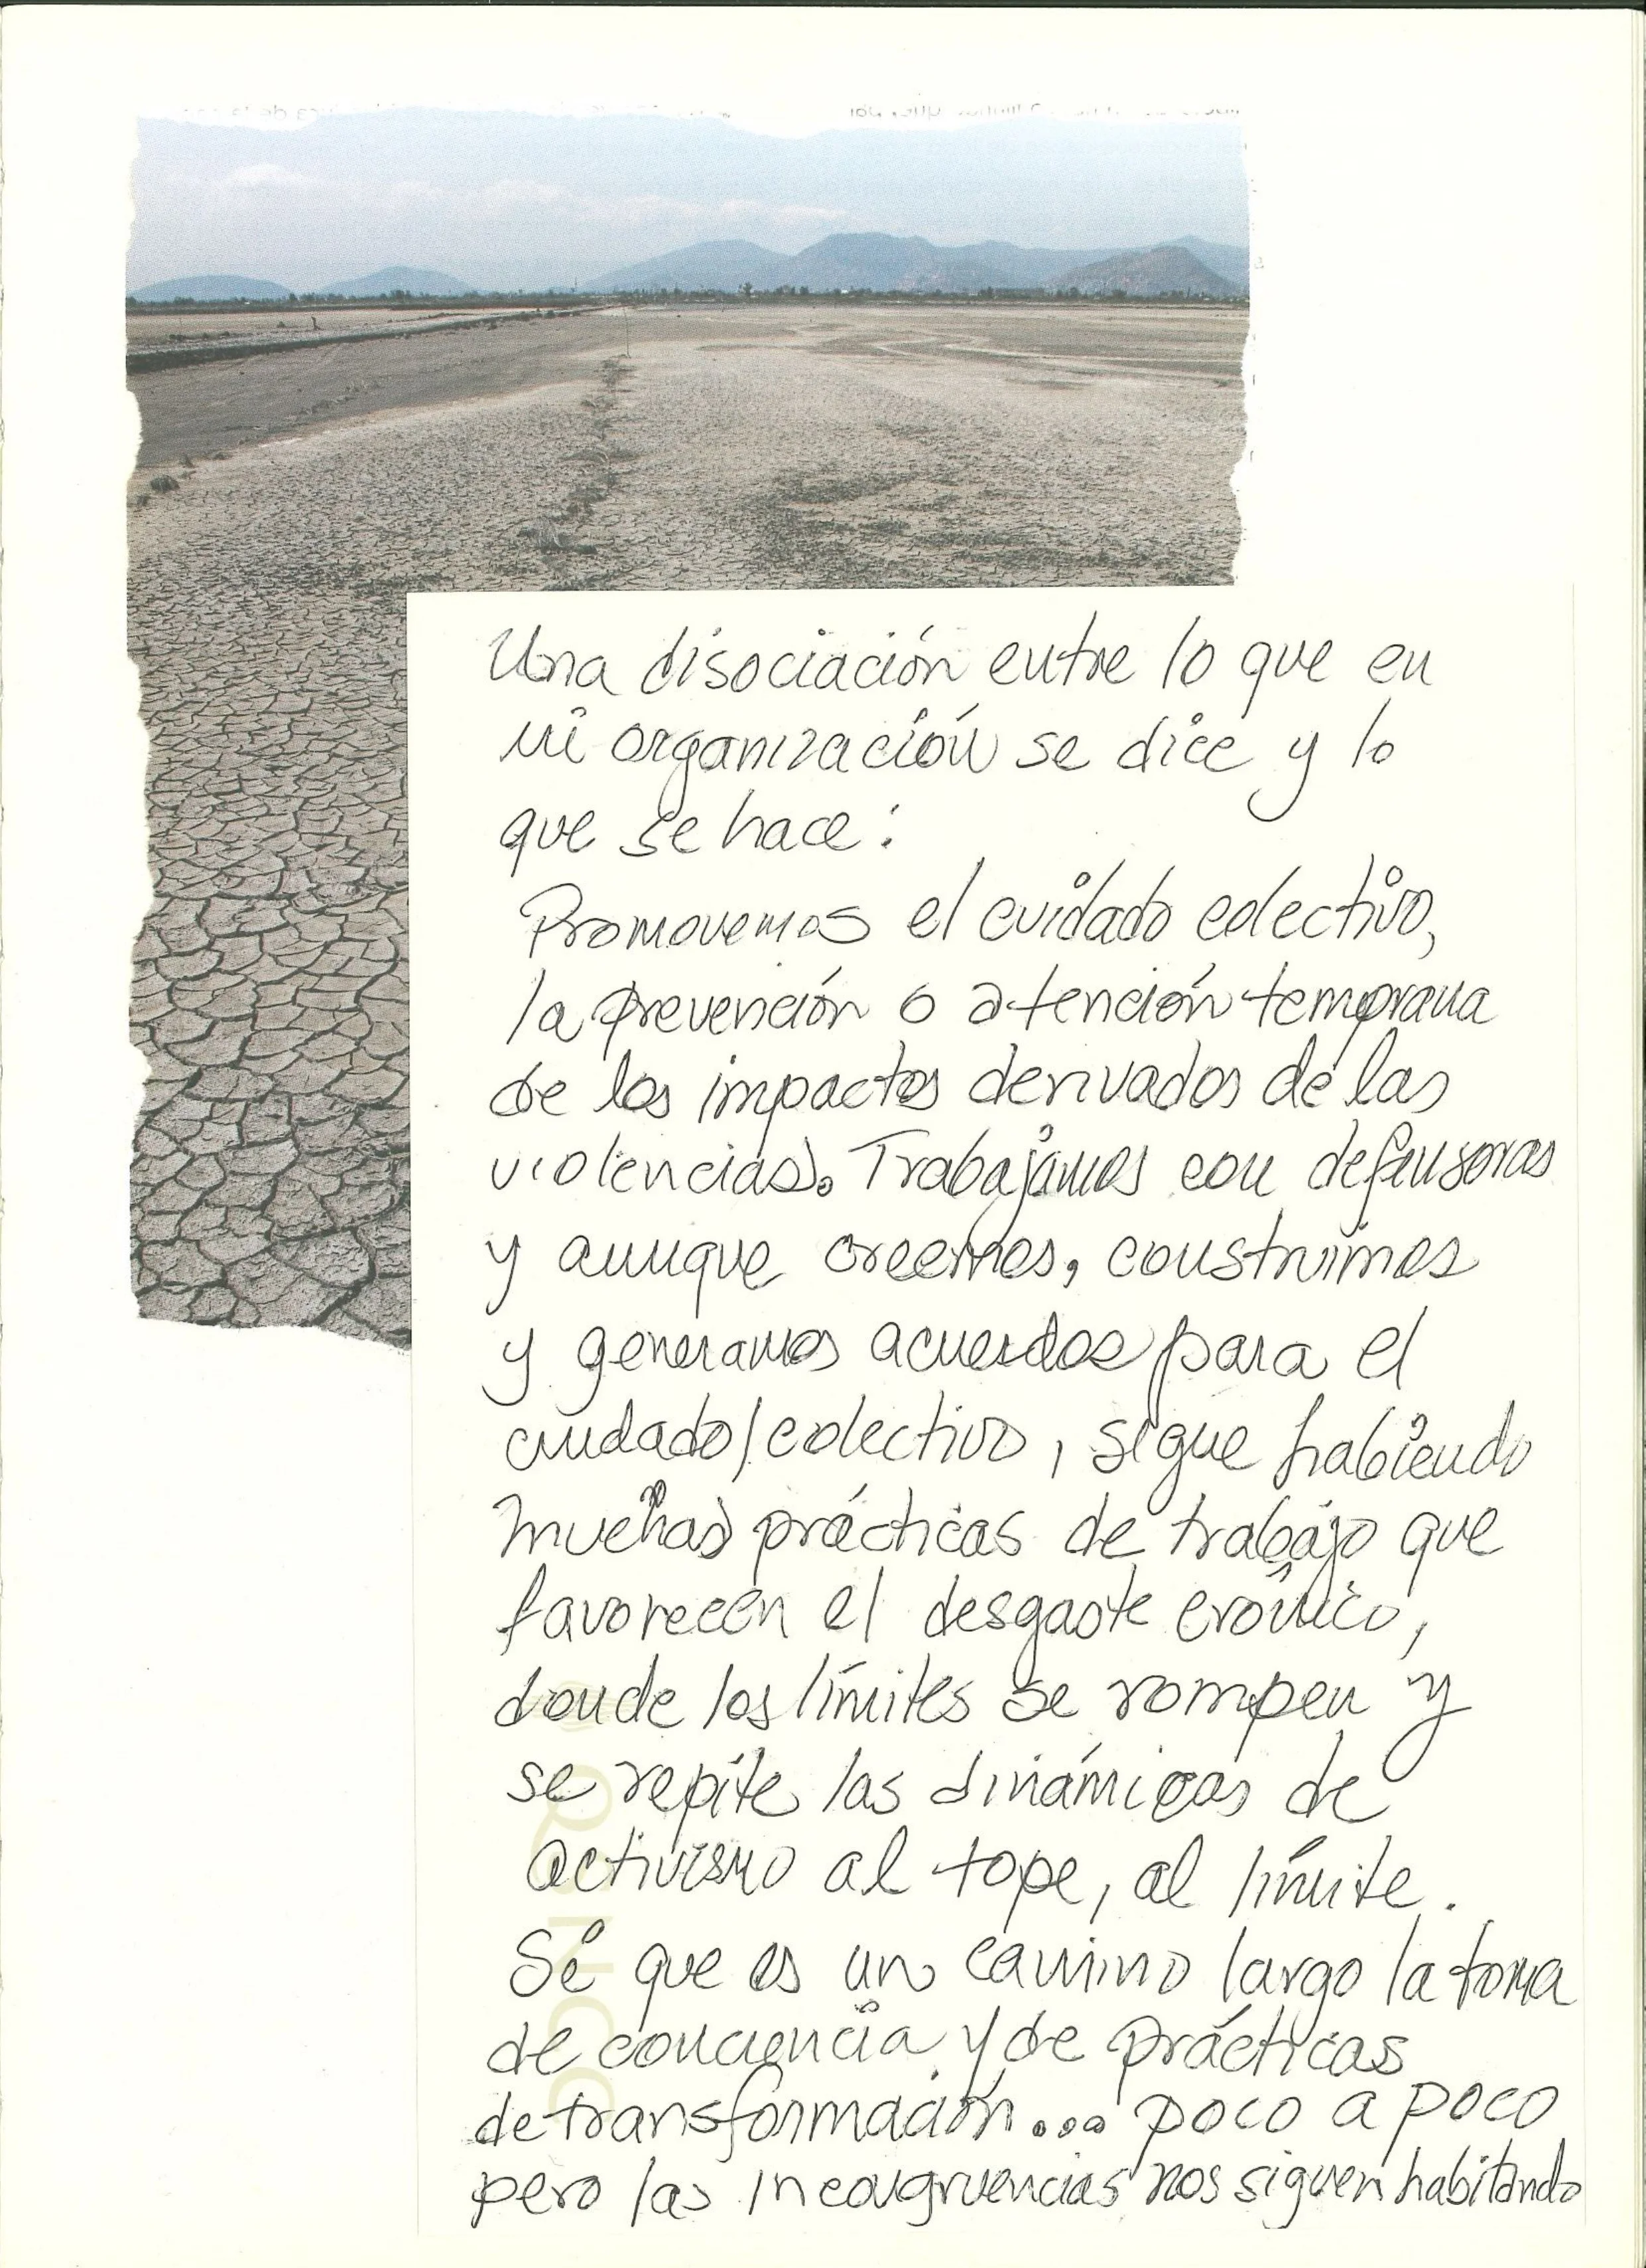 Una disociación entre lo que en
mi organización se dice y lo
que se hace:
Promovemos el cuidado colectivo,
la prevención o atención temprana
de los impactos derivados de las
violencias. Trabajamos con defensoras
y aunque creemos, construimos
y generamos acuerdos para el
cuidado/colectivo, sigue habiendo
muchas prácticas de trabajo que
favorecen el desgaste crónico,
donde los límites se rompen y
se repite las dinámicas de
activismo al tope, al límite.
Sé que es un camino largo la toma
de conciencia y de prácticas
de transformación... poco a poco
pero las incongruencias nos siguen habitando